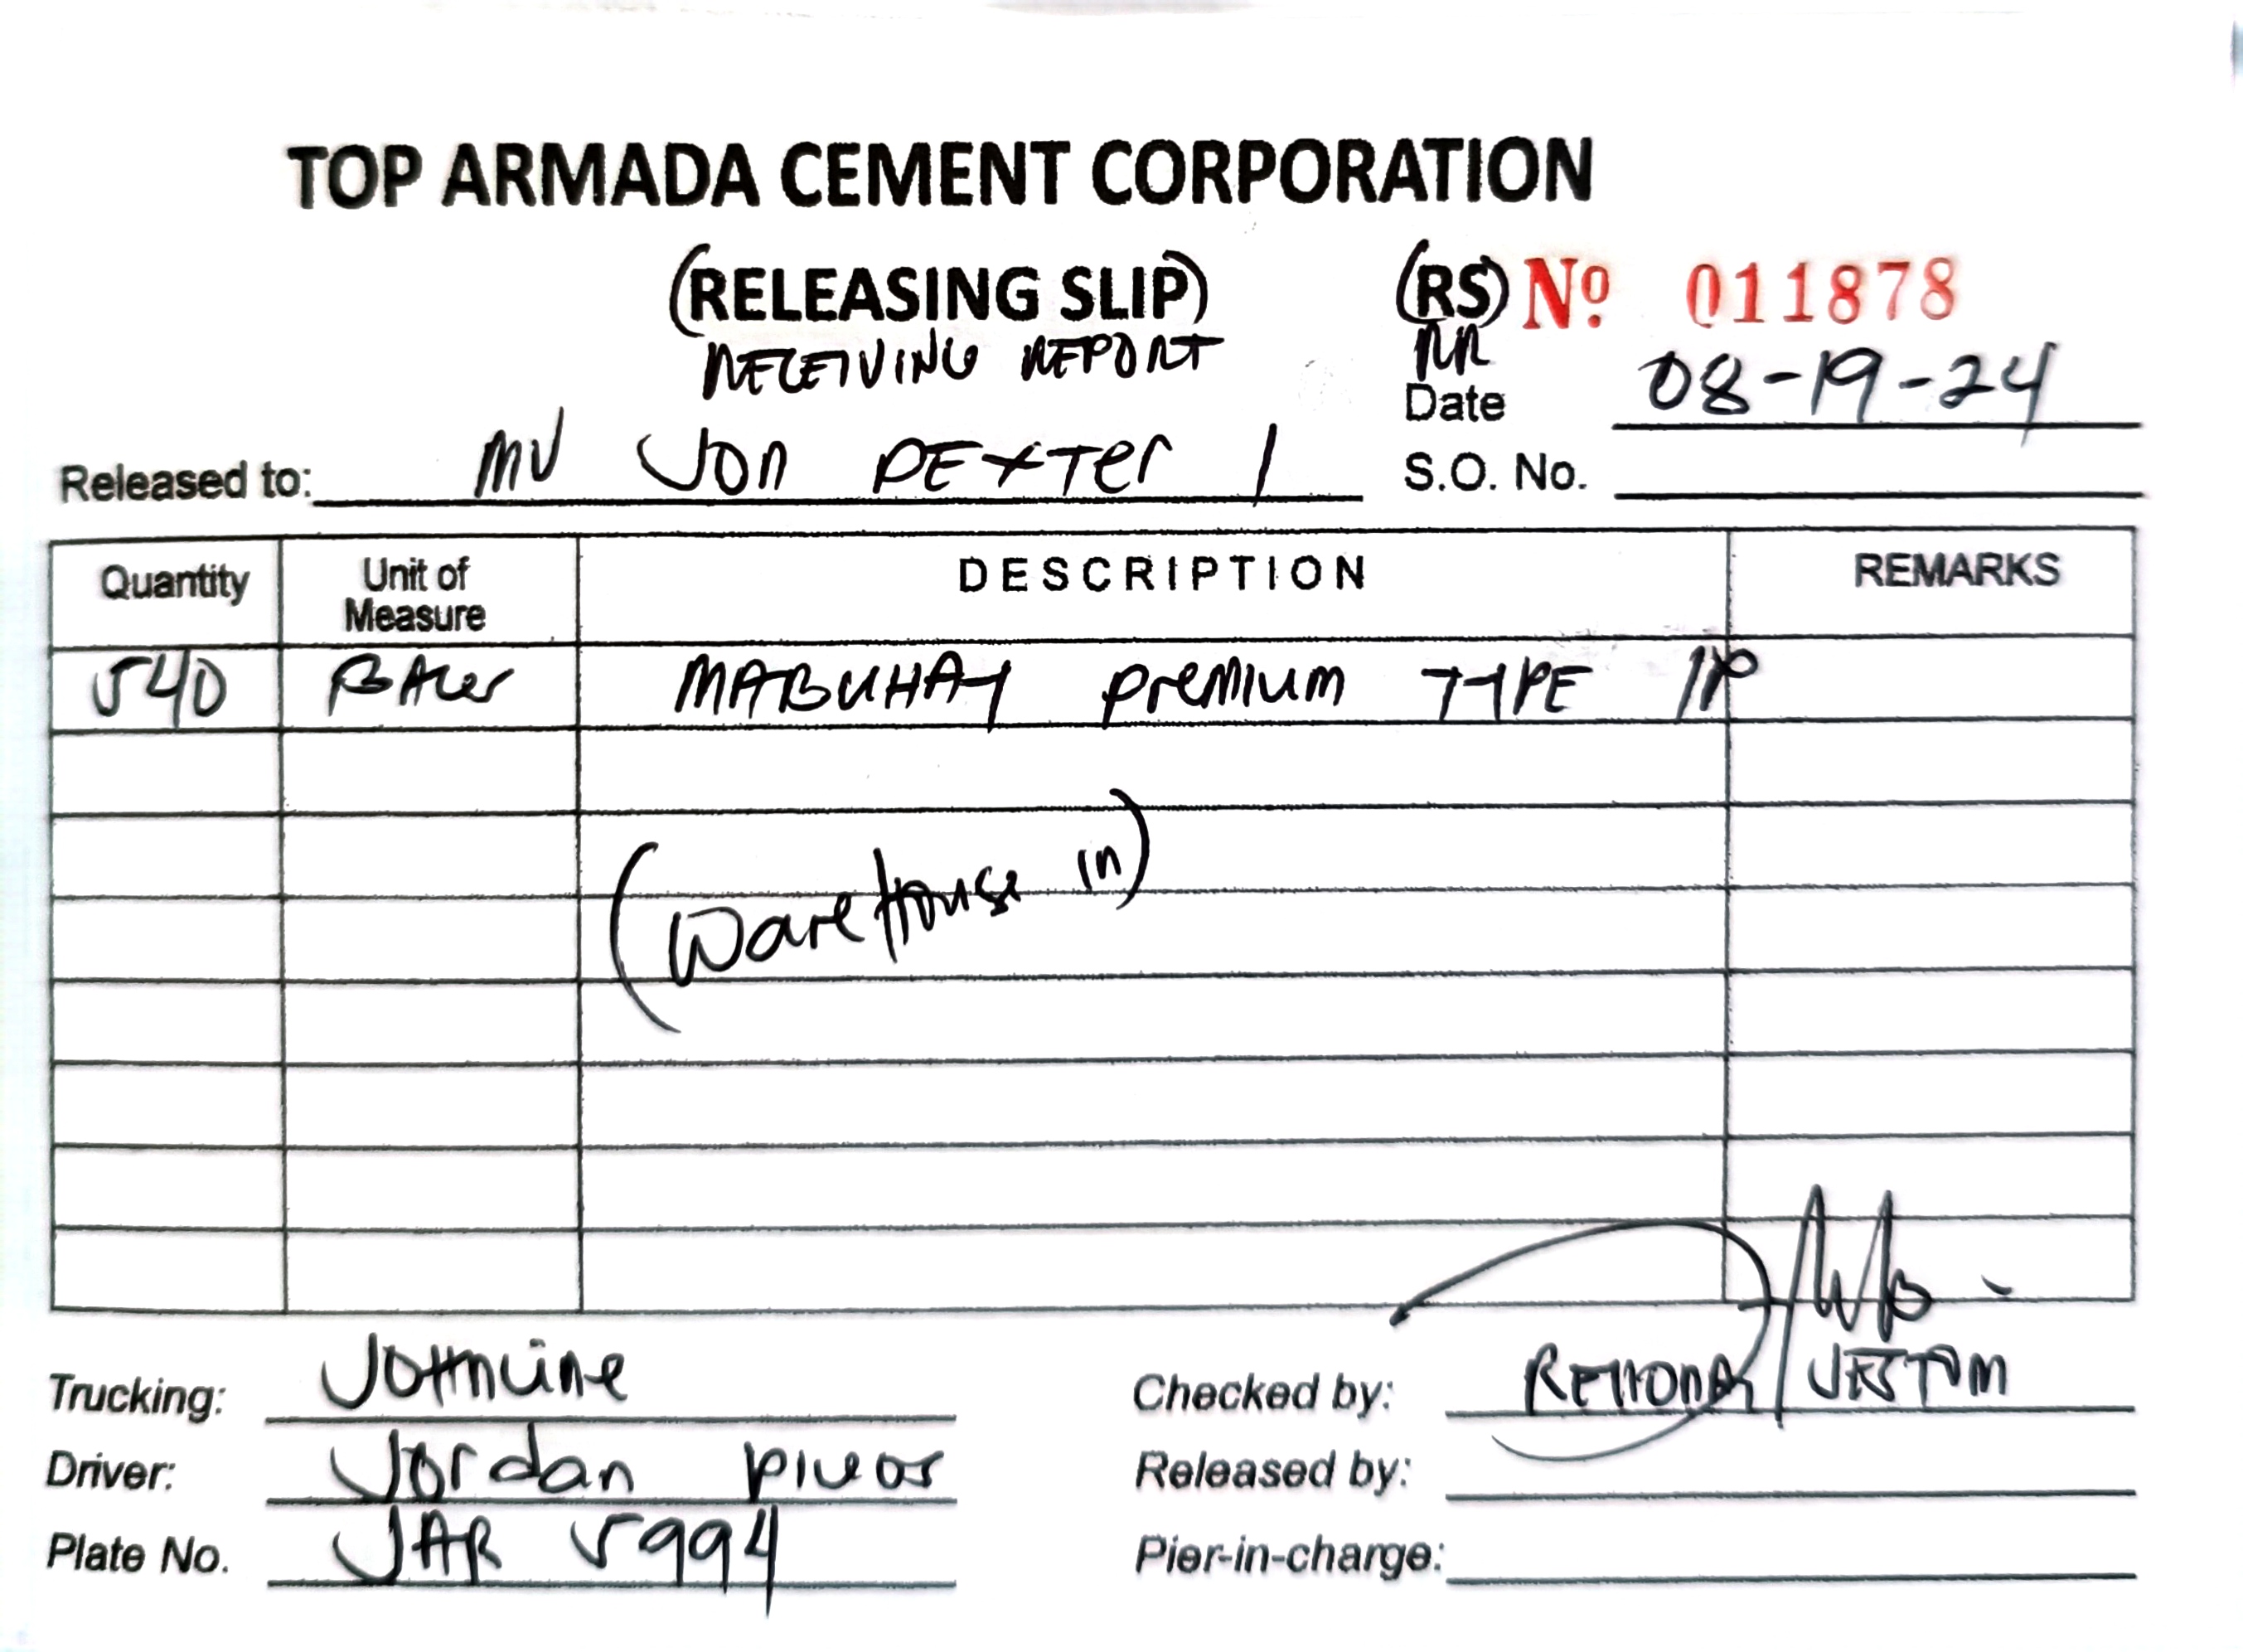 TOP ARMADA CEMENT CORPORATION
(RELEASING SLIP) (RS) Nº 011878
RECEIVING REPORT RR
Date 08-19-24
Released to: MV JON DEXTER 1 S.O. No.
Quantity Unit of Measure DESCRIPTION REMARKS
540 BAGS MABUHAY PREMIUM TYPE 1P
(WareHouse in)
Trucking: JOHNLINE
Checked by: JESTOM
Driver: Jordan
Released by:
Plate No. JAR 5994
Pier-in-charge: